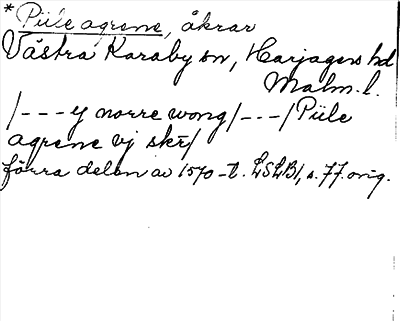 * Piile agrene, åkrar
Västra Karaby sn, Harjagers hd
Malm. l.
/---y norre wong/---/Piile
agrene vj skr/
förra delen av 1570-t. LSLB1, s. 77. orig.